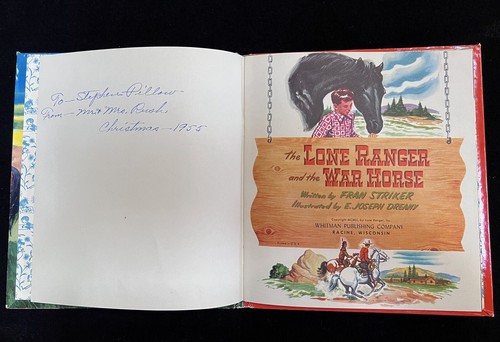 To - Stephen Pillow
From - Mr & Mrs. Rush,
Christmas - 1955
The LONE RANGER
and the WAR HORSE
Written by FRAN STRIKER
Illustrated by E. JOSEPH DREANY
WHITMAN PUBLISHING COMPANY
RACINE, WISCONSIN